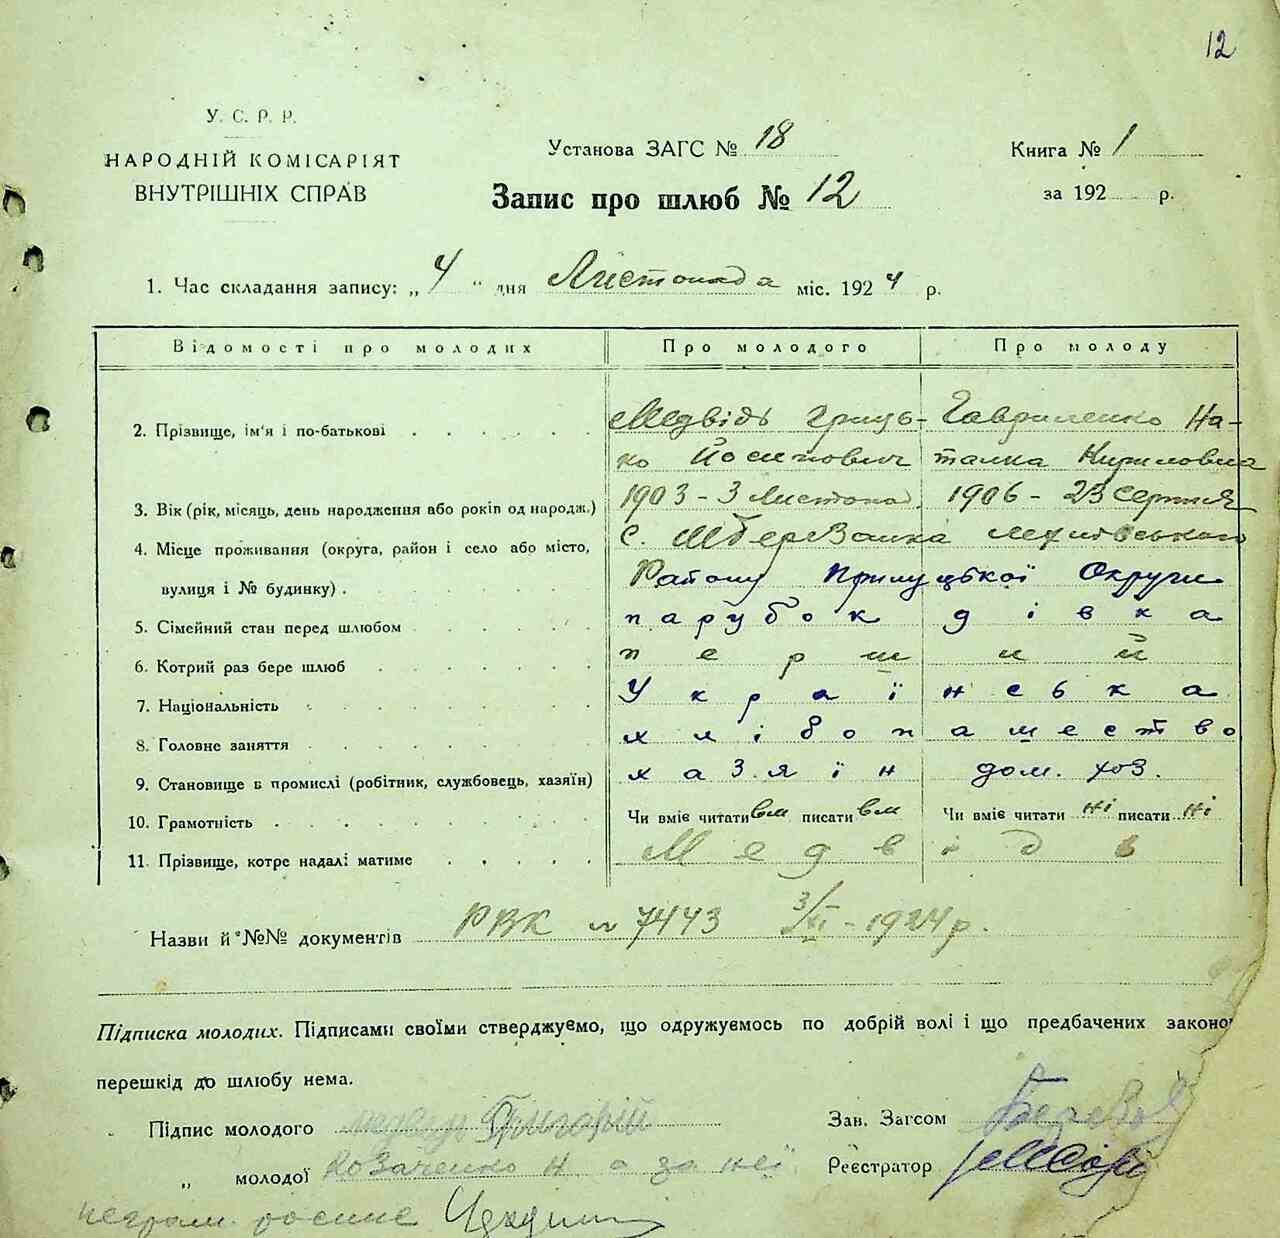 12
У. С. Р. Р.
НАРОДНІЙ КОМІСАРІЯТ
ВНУТРІШНІХ СПРАВ
Установа ЗАГС № 18
Книга № 1
Запис про шлюб № 12
за 192 р.
1. Час складання запису: „4" дня Листопада міс. 1924 р.
Відомості про молодих Про молодого Про молоду
2. Прізвище, ім'я і по-батькові Медвідь Гриць- Гавриленко На-
ко Йосипович талка Кириловна
3. Вік (рік, місяць, день народження або років од народж.) 1903 - 3 Листопа. 1906 - 23 Серпня
4. Місце проживання (округа, район і село або місто, с.
вулиця і № будинку) Району Прилуцької Округи
5. Сімейний стан перед шлюбом парубок дівка
6. Котрий раз бере шлюб перший
7. Національність Українська
8. Головне заняття хлібопашество
9. Становище в промислі (робітник, службовець, хазяїн) хазяїн дом. хоз.
10. Грамотність Чи вміє читати вм писати вм Чи вміє читати ні писати ні
11. Прізвище, котре надалі матиме Медвідь
Назви й №№ документів РВК № 7443 3/XI - 1924 р.
Підписка молодих. Підписами своїми стверджуємо, що одружуємось по добрій волі і що предбачених законо
перешкід до шлюбу нема.
Підпис молодого Григорій
Зав. Загсом
„ молодої Козаченко Н а за неї
Реєстратор
неграм. росписс